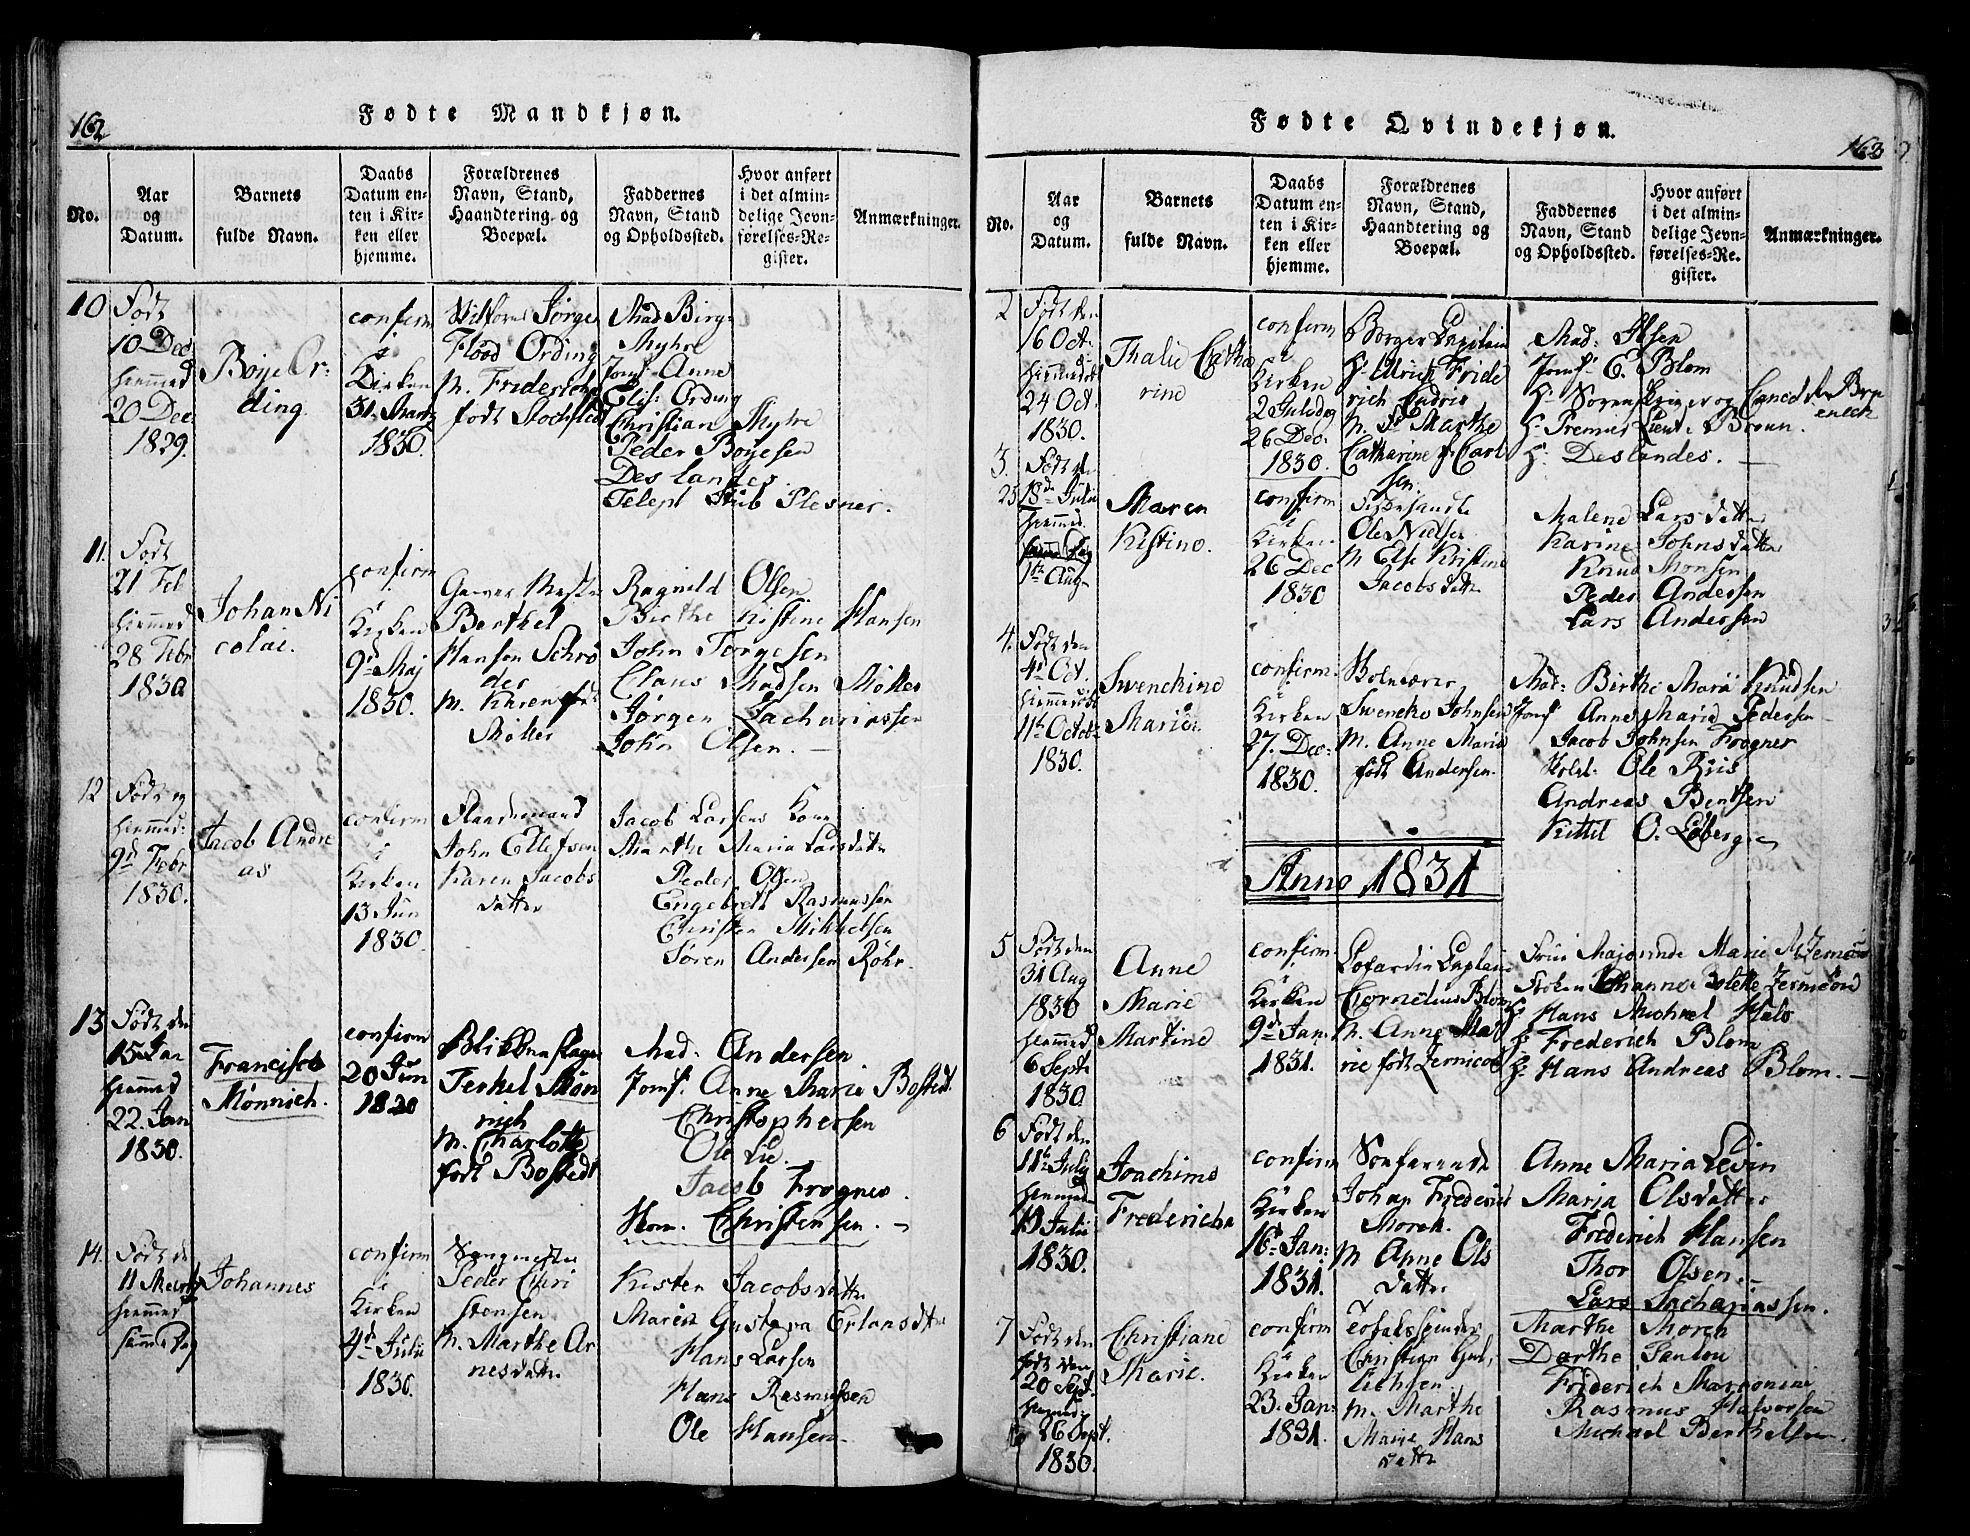 162
Fødte Mandkjøn.
No.
Aar
og
Datum.
Barnets
fulde Navn.
Daabs
Datum en-
ten i Kir-
ken eller
hjemme.
Forældrenes
Navn, Stand,
Haandtering og
Boepæl.
Faddernes
Navn, Stand
og Opholdssted.
Hvor anført
i det almin-
delige Jevn-
førelses-Re-
gister.
Anmærkninger.
10
Født
10 Dec
hiemmed
20 Dec
1829.
Boyje Or-
ding.
confirm
i
Kirken
31. Martz
1830.
Jørgen
Flood Ording
M. Friderich
født Stochfled
Mad Birg
Myhre
Jomf Anne
Elis: Ording
Christian Myhre
Peder Boyesen
Des landes
Teleph Stub Plesner.
11.
Født
21 Feb
hiemmed
28 Febr
1830
Johan Ni
colai.
confirm
i
Kirken
9d Maj
1830.
Berthel
Hansen Schrø
der
M. Karen fød
Møller
Ragnild Olsen
Birthe Kistine Hansen
John Torgesen
Claus Madsen Møller
Jørgen Zachariassen
John Olsen. —
12
Født og
hiemmed:
9d Febr
1830.
Jacob Andre
as
confirm
i
Kirken
13 Jun
1830.
Strandmand
John Ellefsen
Karen Jacobs
datter
Jacob Larsens Kone
Marthe Maria Larsdatter
Peder Olsen
Engebreth Rasmussen
Christen Mikkelsen
Søren Andersen Røhr.
13
Født den
15 Jan
hiemmed
22. Jan
1830.
Francisco
Mønnich.
confirm
20 Jun
1830
Blikkenslager
Terkel Møn
nich
M. Charlotte
født Bostedt
Mad: Andersen
Jomf. Anne Marie Bostedt
Christophersen
Ole Lie.
Jacob Frogner.
Hom. Christensen. —
14.
Født d
11 Martz
hiemmed
samme Dag
Johannes
confirm
i
Kirken
4d Julii
1830.
Peder Chri
stensen
M. Marthe Ar
nesdatter
Kirsten Jacobsdatter
Maren Gustava Erlandsdtr
Hans Larsen
Hans Rasmussen
Ole Hansen
Fødte Qvindekjøn.
163
No.
Aar
og
Datum.
Barnets
fulde Navn.
Daabs
Datum en-
ten i Kir-
ken eller
hjemme.
Forældrenes
Navn, Stand,
Haandtering og
Boepæl.
Faddernes
Navn, Stand
og Opholdssted.
Hvor anført
i det almin-
delige Jevn-
førelses-Re-
gister.
Anmærkninger.
2
Født den
16 Oct.
hiemmedøbt
24 Oct.
1830.
Thalie Catha
rine
confirm
i
Kirken
2 Juledag
26 Dec.
1830.
Borger Capitain
H. Ulrich Fride
rich
M. Fr Marthe
Catharine f. Carl
sen
Mad: Ilsen
Jomf. C. Blom
H. Sorenskriver og
H. Premier Lieut: Bruun.
H. Deslandes. —
3.
Født d
18de Julii
hiemmed.
1te Aug
Maren
Kistine.
confirm
i
Kirken
26 Dec
1830
Ole Nielsen
M. Else Kristine
Jacobsdatter
Malene Larsdatter
Karine Johnsdatter
Knud Monsen
Peder Andersen
Lars Andersen
4.
Født den
4d Oct.
hiemmedøbt
11te Octob:
1830.
Swenchine
Marie.
confirm.
i
Kirken
27. Dec.
1830.
Swencke Johnsen
M. Anne Marie
født Andersen.
Mad: Birthe Marie Knudsen
Jomf Anne Marie Pedersen
Jacob Johnsen Frogner
Ole Riis
Andreas Bentsen
Kittil O. Løberg
Anno 1831
5
Født den
31 Aug
1830
hiemmed
6 Septr
1830.
Anne
Marie
Martine
confirm.
i
Kirken
9d Jan.
1831.
Cornelius Blom
M. Anne Ma
rie født Zernicow
Fru Majorinde Marie
Frøken Johanne Bolette Zernicow
H. Hans Michael Hals
H. Frederich Blom
H. Hans Andreas Blom. —
6
Født den
11te Julii
hiemmed
13 Julii
1830.
Joachime
Fredericha
confirm
i
Kirken
16d Jan:
1831.
Søefarende
Johan Frederich
Morch.
M Anne Ols
datter
Anne Maria Levin
Maria Olsdatter
Frederich Hansen
Thor Olsen —
Lars Zachariassen.
7
Født den
født den
20 Sept.
hiemmed:
26 Sept.
1830.
Christiane
Marie.
confirm
i
Kirken
23. Jan:
1831.
Tobakspinder
Christian Gul
lichsen
M. Marthe
Marie Hans
datter
Marthe Moren
Dorthe Sandou
Friderich
Rasmus Halvorsen
Michael Berthelsen.